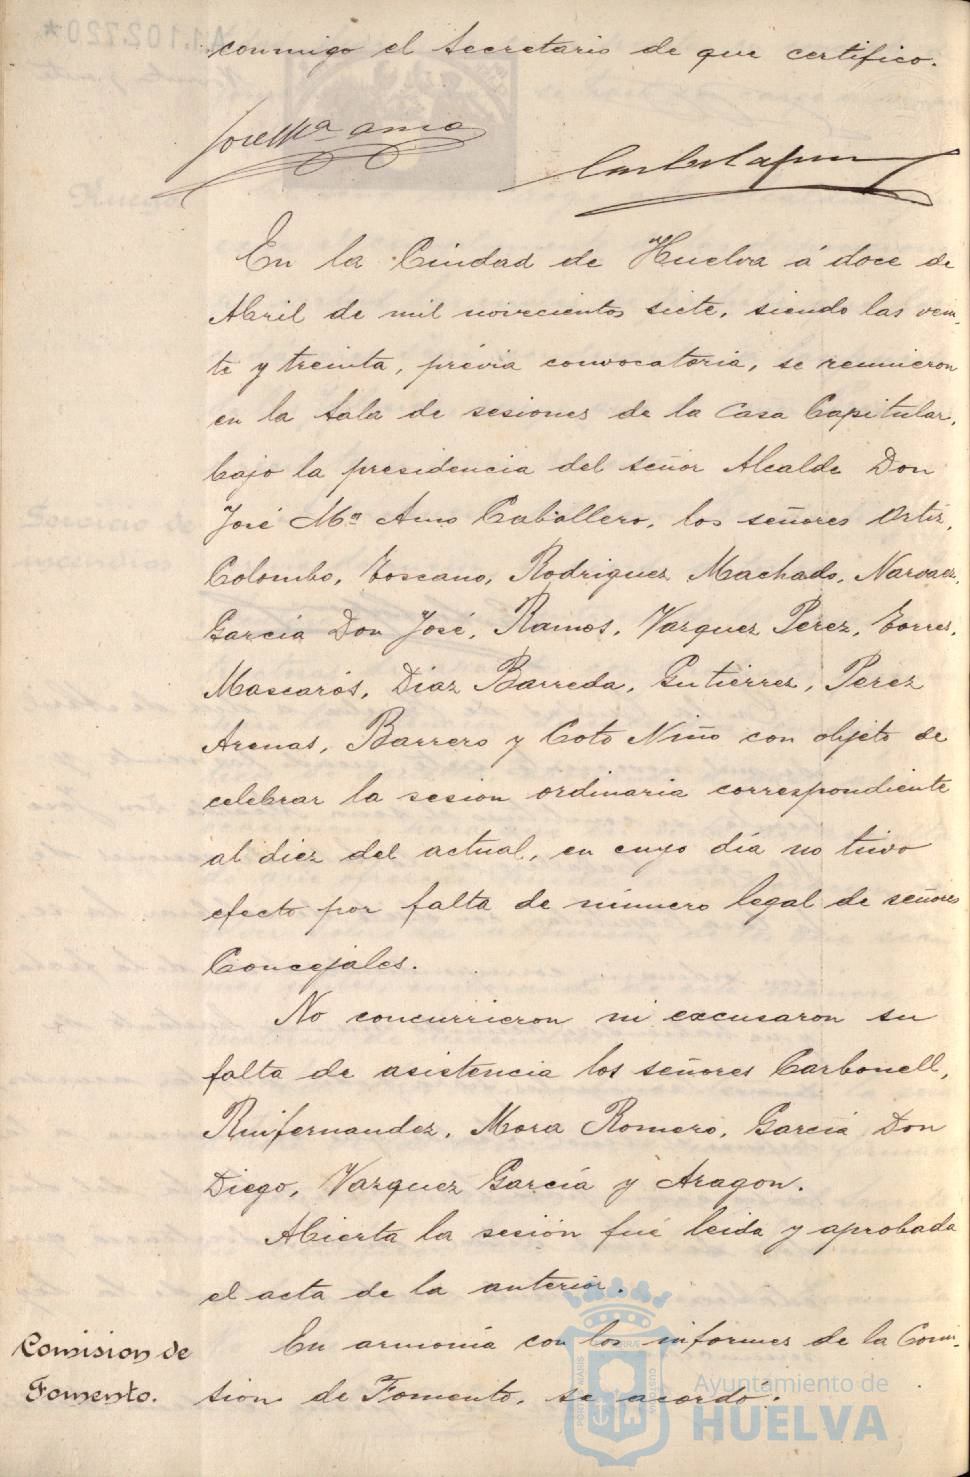 conmigo el Secretario de que certifico.
José Mª Amo
En la Ciudad de Huelva á doce de
Abril de mil novecientos siete, siendo las vein-
te y treinta, prévia convocatoria, se reunieron
en la Sala de sesiones de la Casa Capitular,
bajo la presidencia del señor Alcalde Don
José Mª Amo Caballero, los señores Ortiz,
Colombo, Toscano, Rodriguez Machado, Narvaez,
García Don José, Ramos, Vazquez Perez, Torres,
Mascarós, Diaz Barreda, Gutierrez, Perez
Arenas, Barrero y Coto Niño con objeto de
celebrar la sesion ordinaria correspondiente
al diez del actual, en cuyo día no tuvo
efecto por falta de número legal de señores
Concejales.
No concurrieron ni excusaron su
falta de asistencia los señores Carbonell,
Ruifernandez, Mora Romero, García Don
Diego, Vazquez García y Aragon.
Abierta la sesión fué leida y aprobada
el acta de la anterior.
Comision de
Fomento.
En armonía con los informes de la Comi-
sion de Fomento, se acordó:
Ayuntamiento de
HUELVA